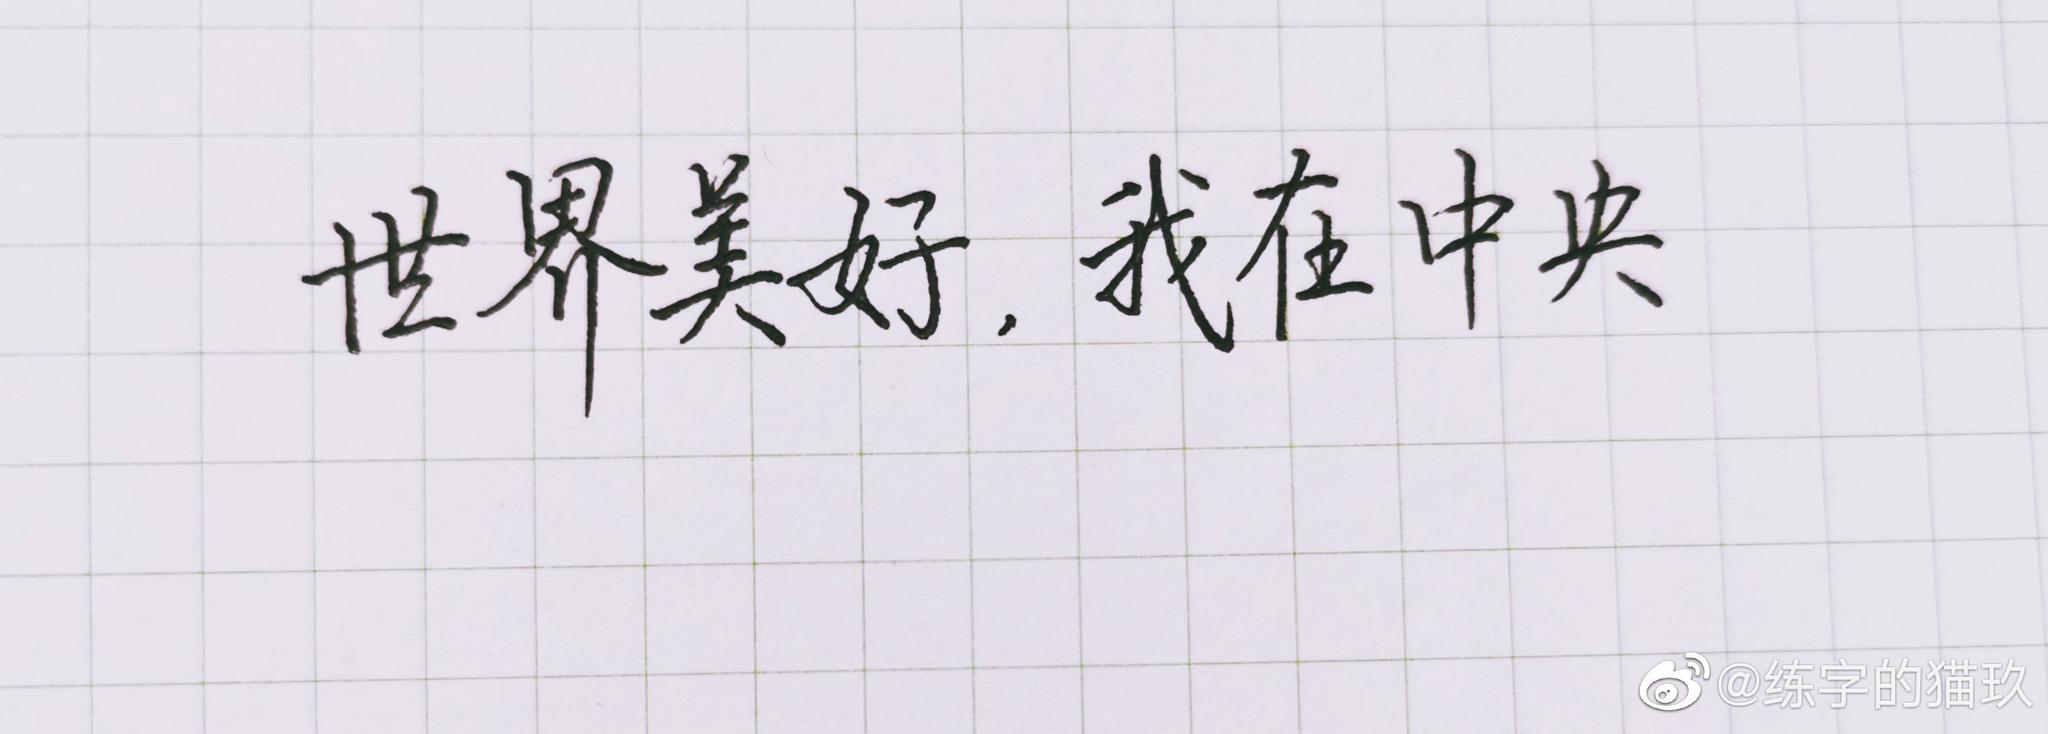 世界美好，我在中央
@练字的猫玖